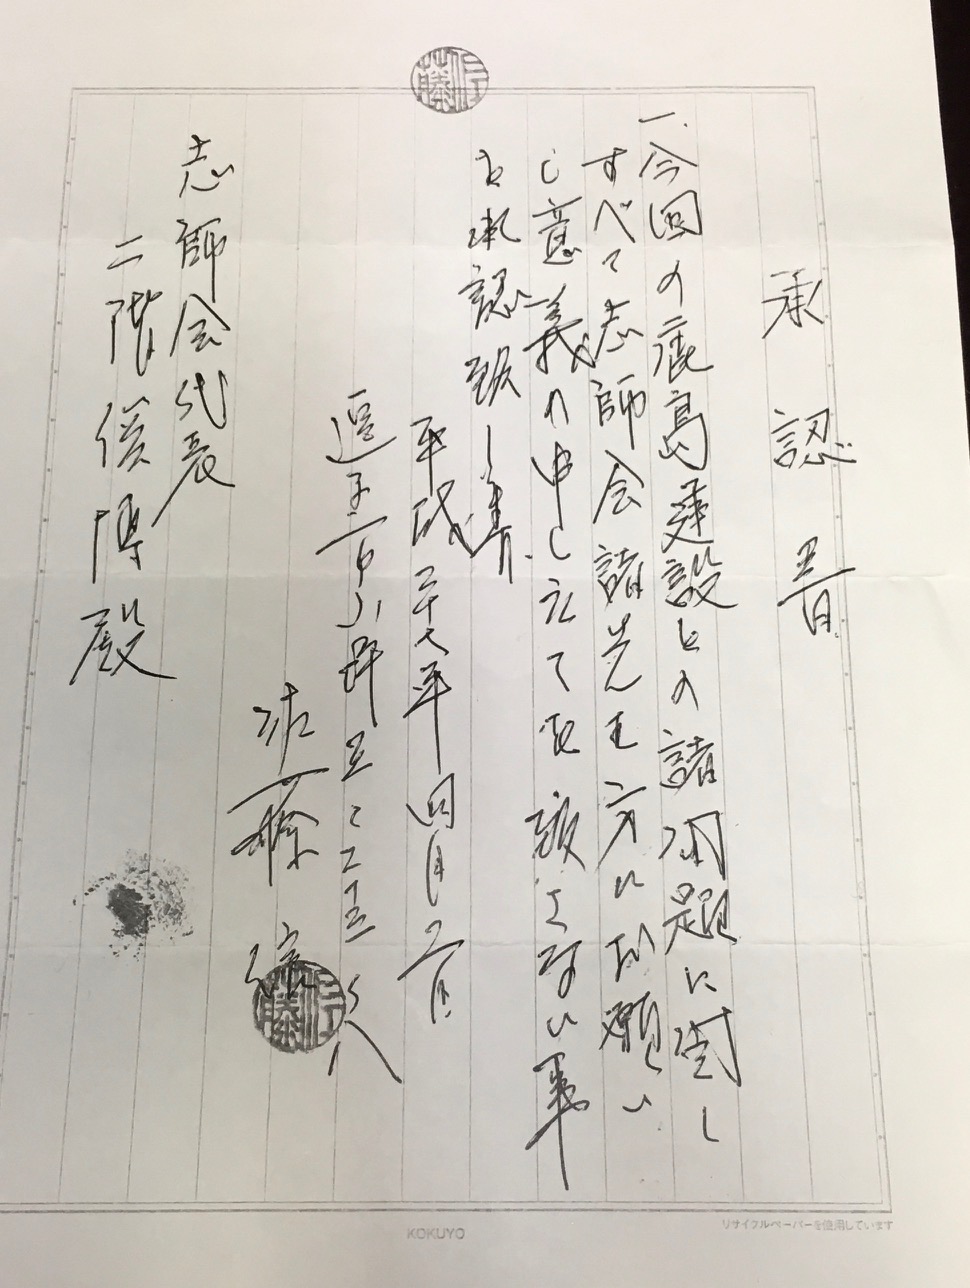 承認書
一、今回の鹿島建設との諸問題に対し
すべて志師会諸先生方にお願い
し意義の申し立てを致さない事
を承認致します。
平成二十八年四月二日
逗子市小坪五ー二十五ー八
佐藤
志師会代表
二階俊博殿
佐藤
佐藤
KOKUYO
リサイクルペーパーを使用しています